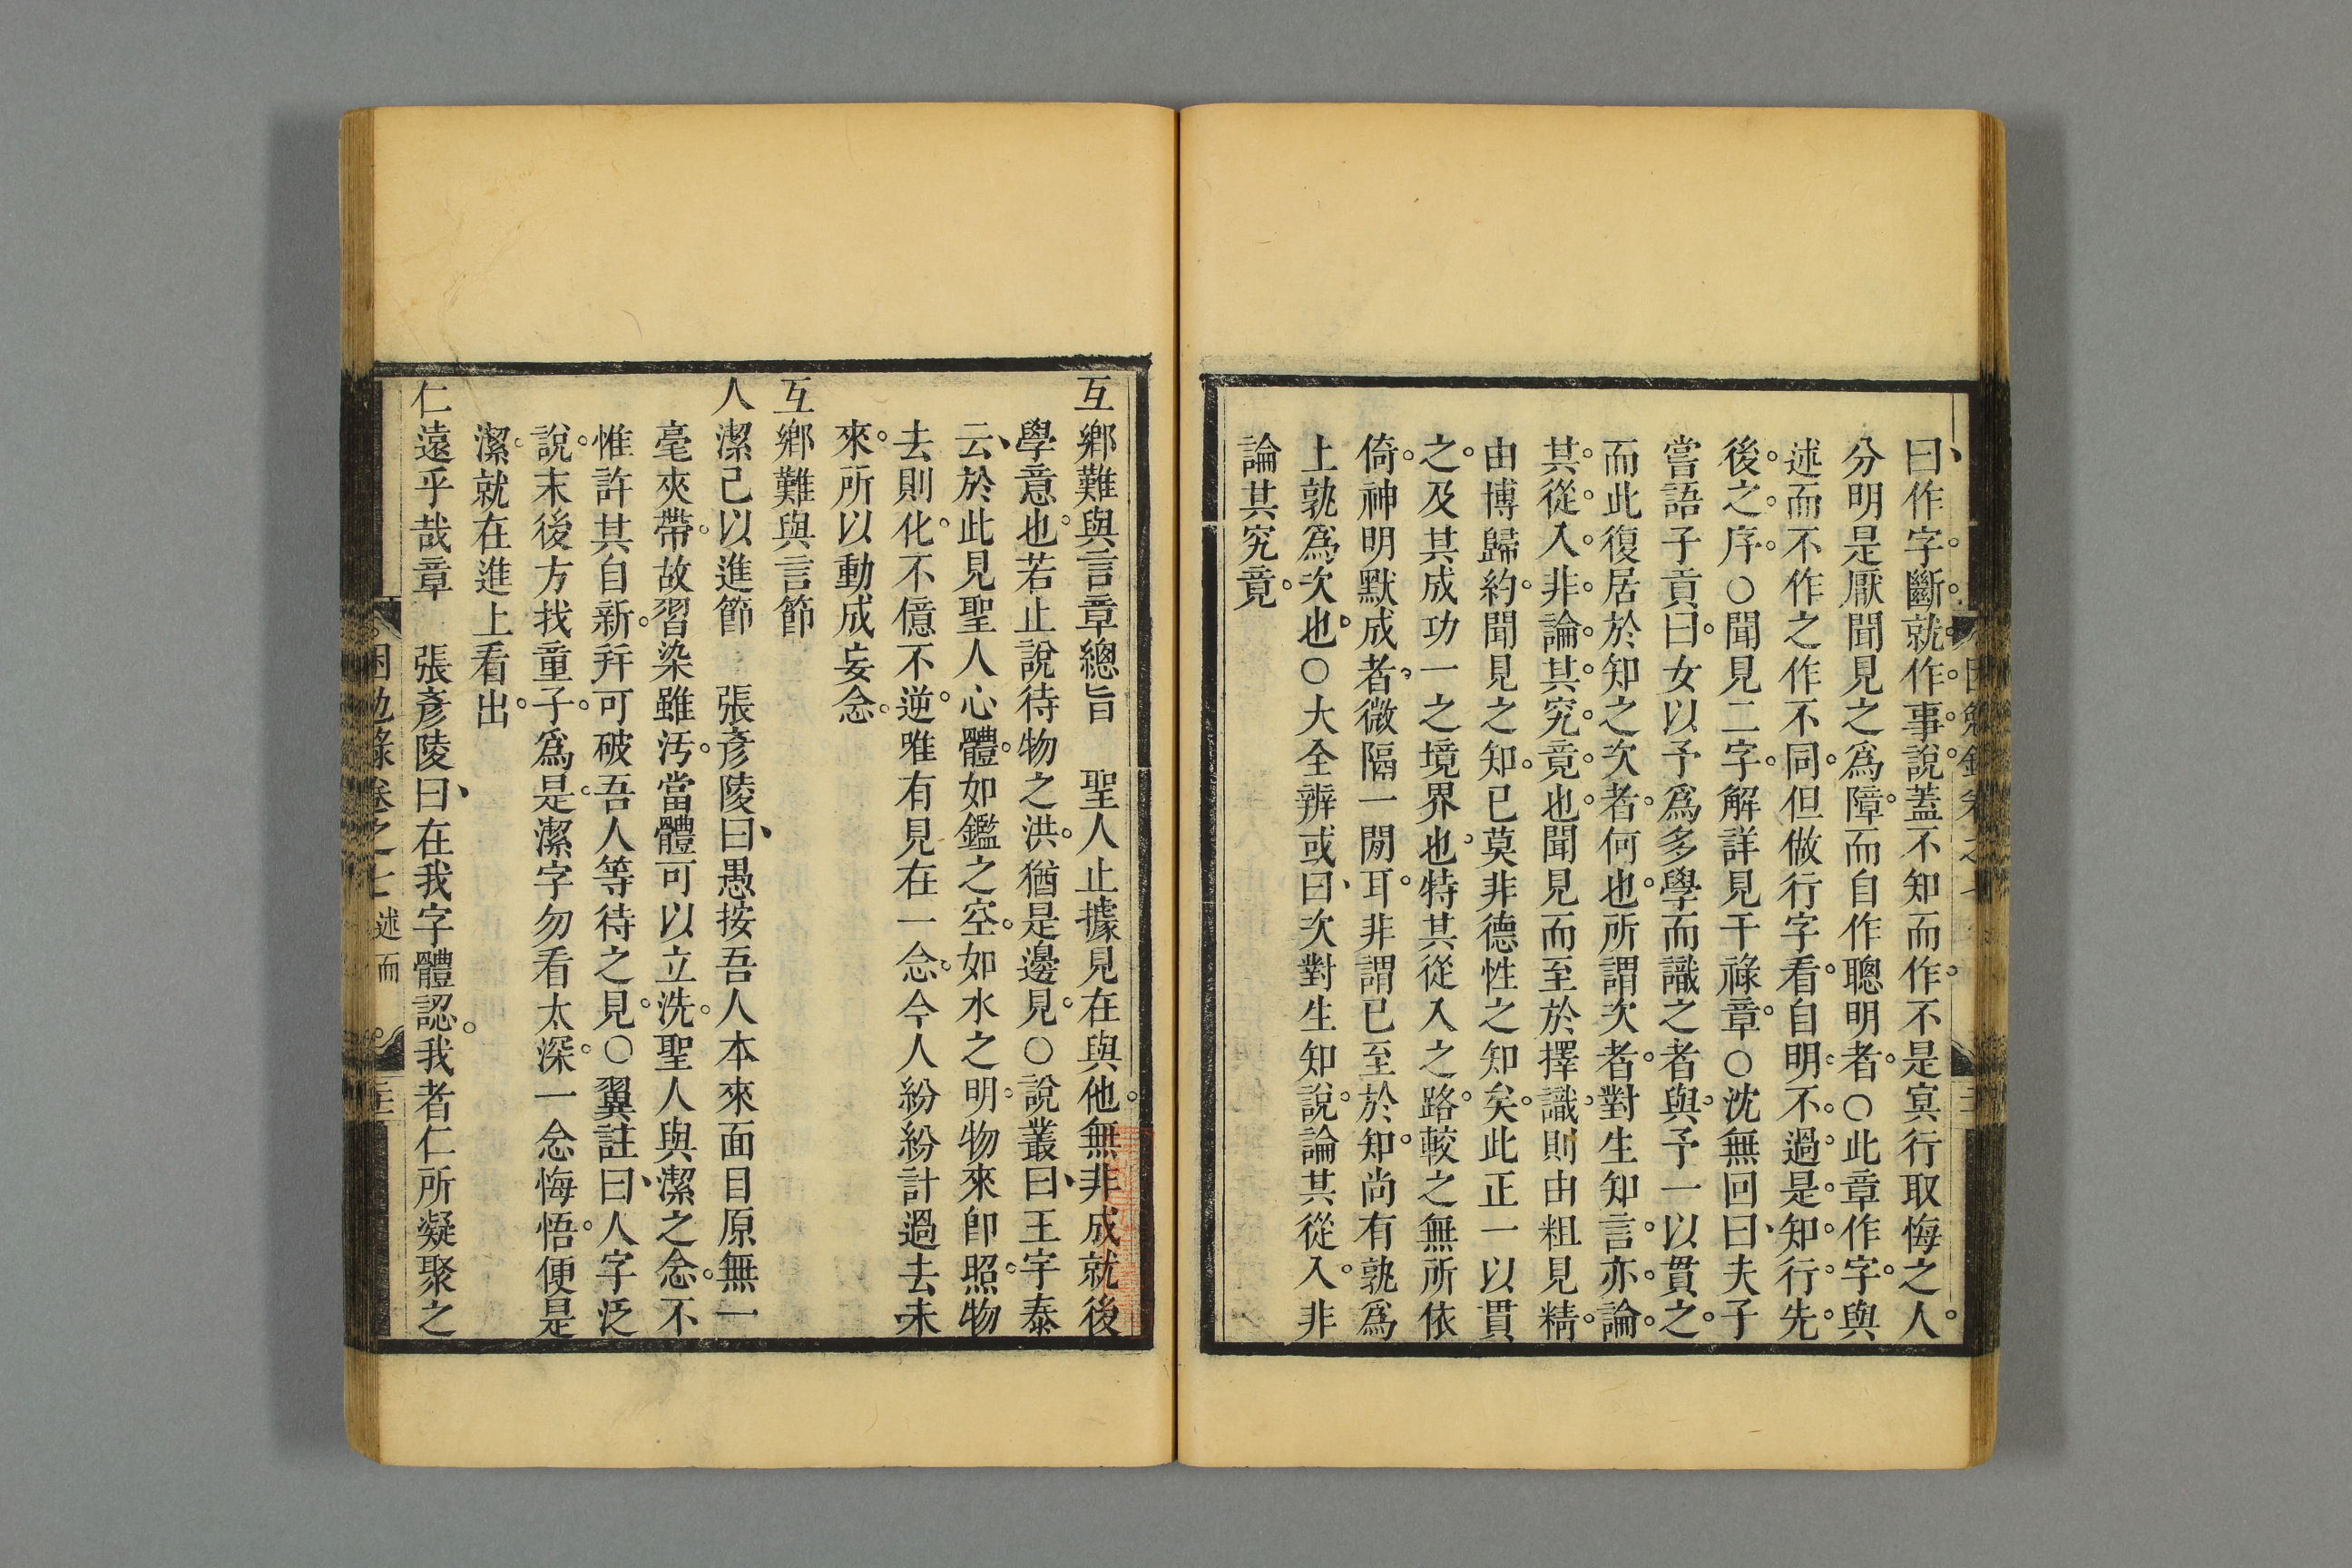 曰作字斷就作事說蓋不知而作不是冥行取悔之人
分明是厭聞見之爲障而自作聰明者○此章作字與
述而不作之作不同但做行字看自明不過是知行先
後之序○聞見二字解詳見干祿章○沈無回曰夫子
嘗語子貢曰女以予爲多學而識之者與予一以貫之
而此復居於知之次者何也所謂次者對生知言亦論
其從入非論其究竟也聞見而至於擇識則由粗見精
由博歸約聞見之知已莫非德性之知矣此正一以貫
之及其成功一之境界也特其從入之路較之無所依
倚神明默成者微隔一閒耳非謂已至於知尚有孰爲
上孰爲次也○大全辨或曰次對生知說論其從入非
論其究竟
互鄉難與言章總旨 聖人止據見在與他無非成就後
學意也若止說待物之洪猶是邊見○說叢曰王宇泰
云於此見聖人心體如鑑之空如水之明物來卽照物
去則化不億不逆唯有見在一念今人紛紛計過去未
來所以動成妄念
互鄉難與言節
人潔己以進節 張彥陵曰愚按吾人本來面目原無一
毫夾帶故習染雖汚當體可以立洗聖人與潔之念不
惟許其自新幷可破吾人等待之見○翼註曰人字泛
說末後方找童子爲是潔字勿看太深一念悔悟便是
潔就在進上看出
仁遠乎哉章 張彥陵曰在我字體認我者仁所凝聚之
困勉錄卷之七 述而